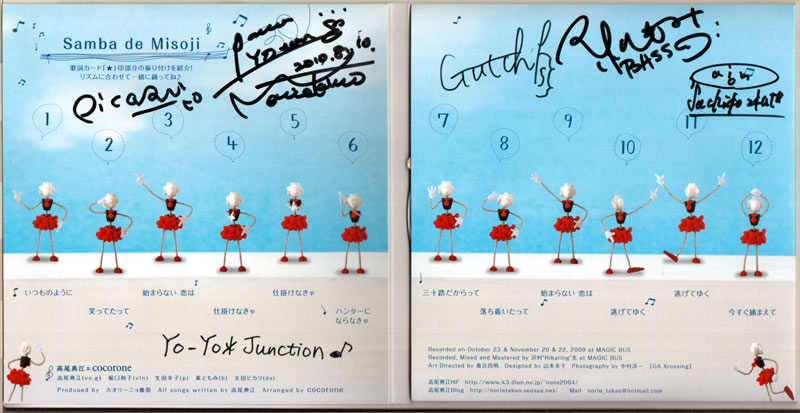 Samba de Misoji
歌詞カード「★」印部分の振り付けを紹介!
リズムに合わせて一緒に踊ってね♪
YO-YO
2010.8.10.
Gutch
BASS
1
2
3
4
5
6
7
8
9
10
11
12
いつものように
笑ってたって
始まらない 恋は
仕掛けなきゃ
仕掛けなきゃ
ハンターに
ならなきゃ
三十路だからって
落ち着いたって
始まらない 恋は
逃げてゆく
逃げてゆく
今すぐ捕まえて
Yo-Yo* Junction ♪
高尾典江 & cocorone
高尾典江(vo.g) 堀口和子(vln) 生田幸子(p) 東ともみ(b) 太田ピカリ(ds)
Produced by カオリーニョ藤原 All songs written by 高尾典江 Arranged by cocorone
Recorded on October 23 & November 20 & 22, 2009 at MAGIC BUS
Recorded, Mixed and Mastered by 沢村"Rikaring"光 at MAGIC BUS
Art Directed by 兼谷昌明 Designed by 山本幸子 Photography by 中村洋一 [GA Xrossing]
高尾典江HP http://www.k3.dion.ne.jp/~nons2004/
高尾典江Blog http://norietakao.seesaa.net/ Mail norie_takao@hotmail.com